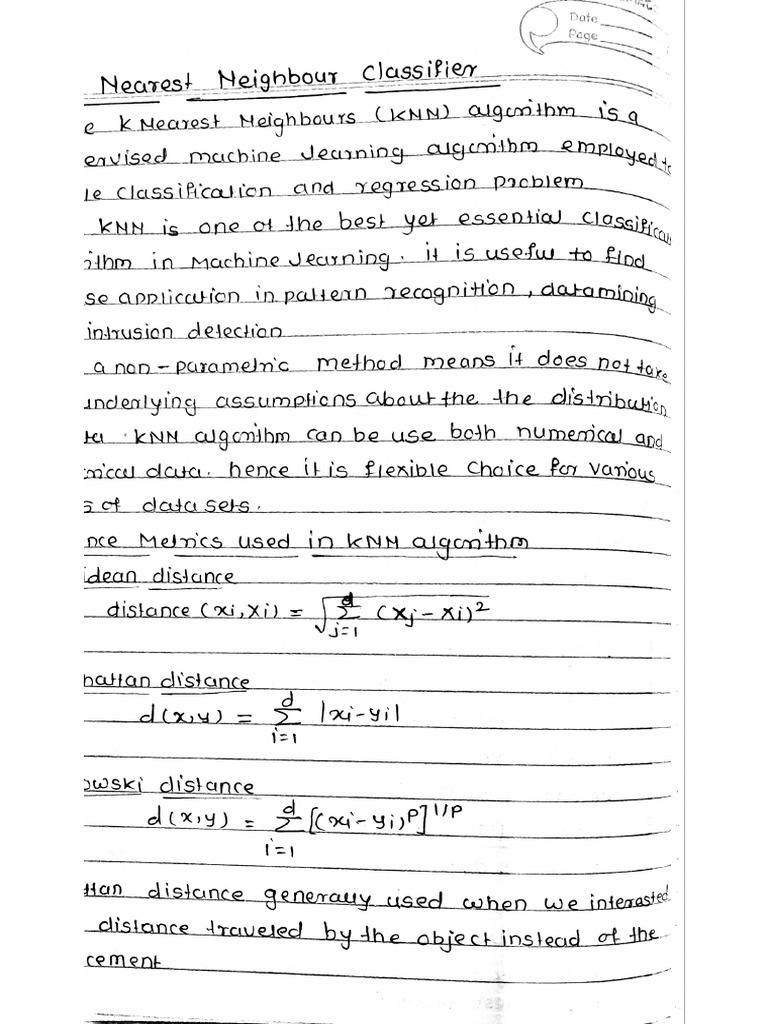 Date
Page
Nearest Neighbour Classifier
e K Nearest Neighbours (KNN) algorithm is a
ervised machine learning algorithm employed to
le classification and regression problem
KNN is one of the best yet essential classificati
ithm in Machine learning. it is useful to find
se application in pattern recognition, datamining
intrusion detection
a non-parametric method means it does not take
underlying assumptions about the the distribution
ta. KNN algorithm can be use both numerical and
rical data. hence it is flexible choice for various
s of data sets.
nce Metrics used in KNN algorithm
idean distance
distance (xi, Xi) = √∑ d j=1 (xj - xi)²
hattan distance
d(x,y) = d ∑ i=1 |xi-yi|
owski distance
d(x,y) = d ∑ i=1 [(xi-yi)^p]^1/p
ttan distance generally used when we interasted
distance traveled by the object instead of the
cement